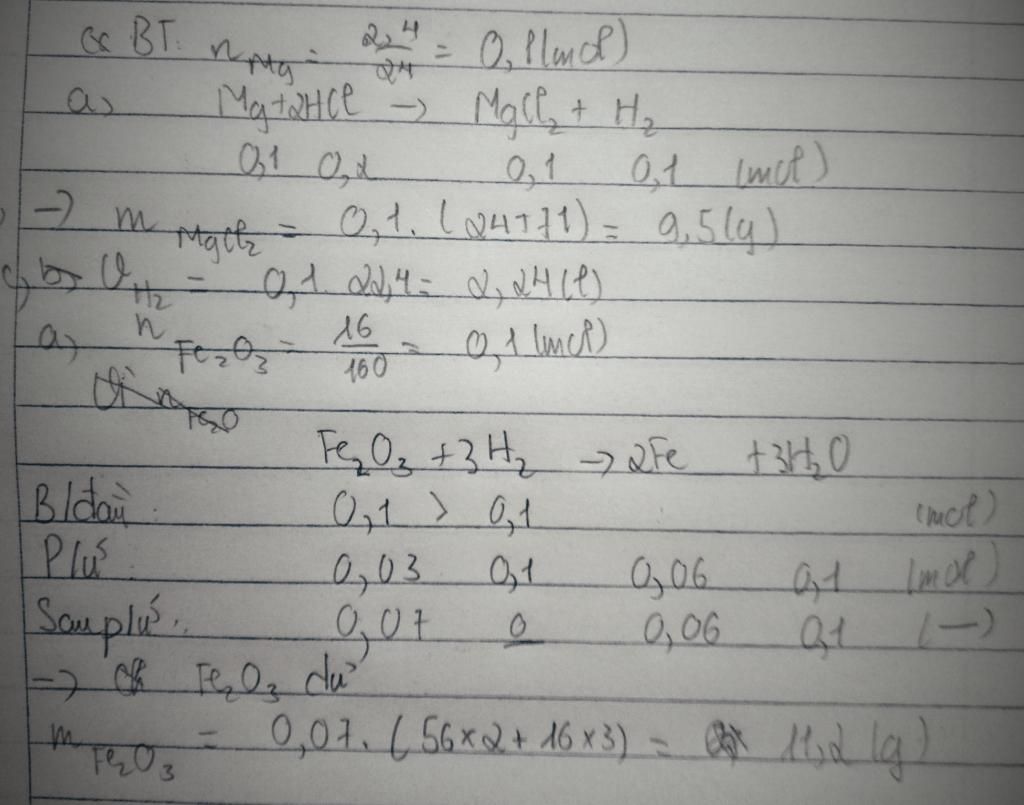 BT: n Mg = 2,4/24 = 0,1 (mol)
a) Mg + 2HCl → MgCl₂ + H₂
0,1 0,2 0,1 0,1 (mol)
→ m MgCl₂ = 0,1. (24+71) = 9,5 (g)
b) V H₂ = 0,1. 22,4 = 2,24 (l)
a) n Fe₂O₃ = 16/160 = 0,1 (mol)
Vì n Fe₂O
Fe₂O₃ + 3H₂ → 2Fe + 3H₂O
B/đầu: 0,1 > 0,1 (mol)
P/ứ: 0,03 0,1 0,06 0,1 (mol)
Sau p/ứ: 0,07 0 0,06 0,1 (—)
→ Fe₂O₃ dư
m Fe₂O₃ = 0,07. (56×2 + 16×3) = 11,2 (g)